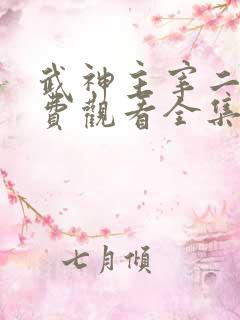 武神主宰二
費觀看全集
七月傾